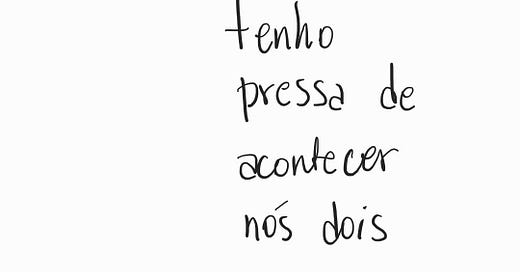 tenho
pressa de
acontecer
nós dois